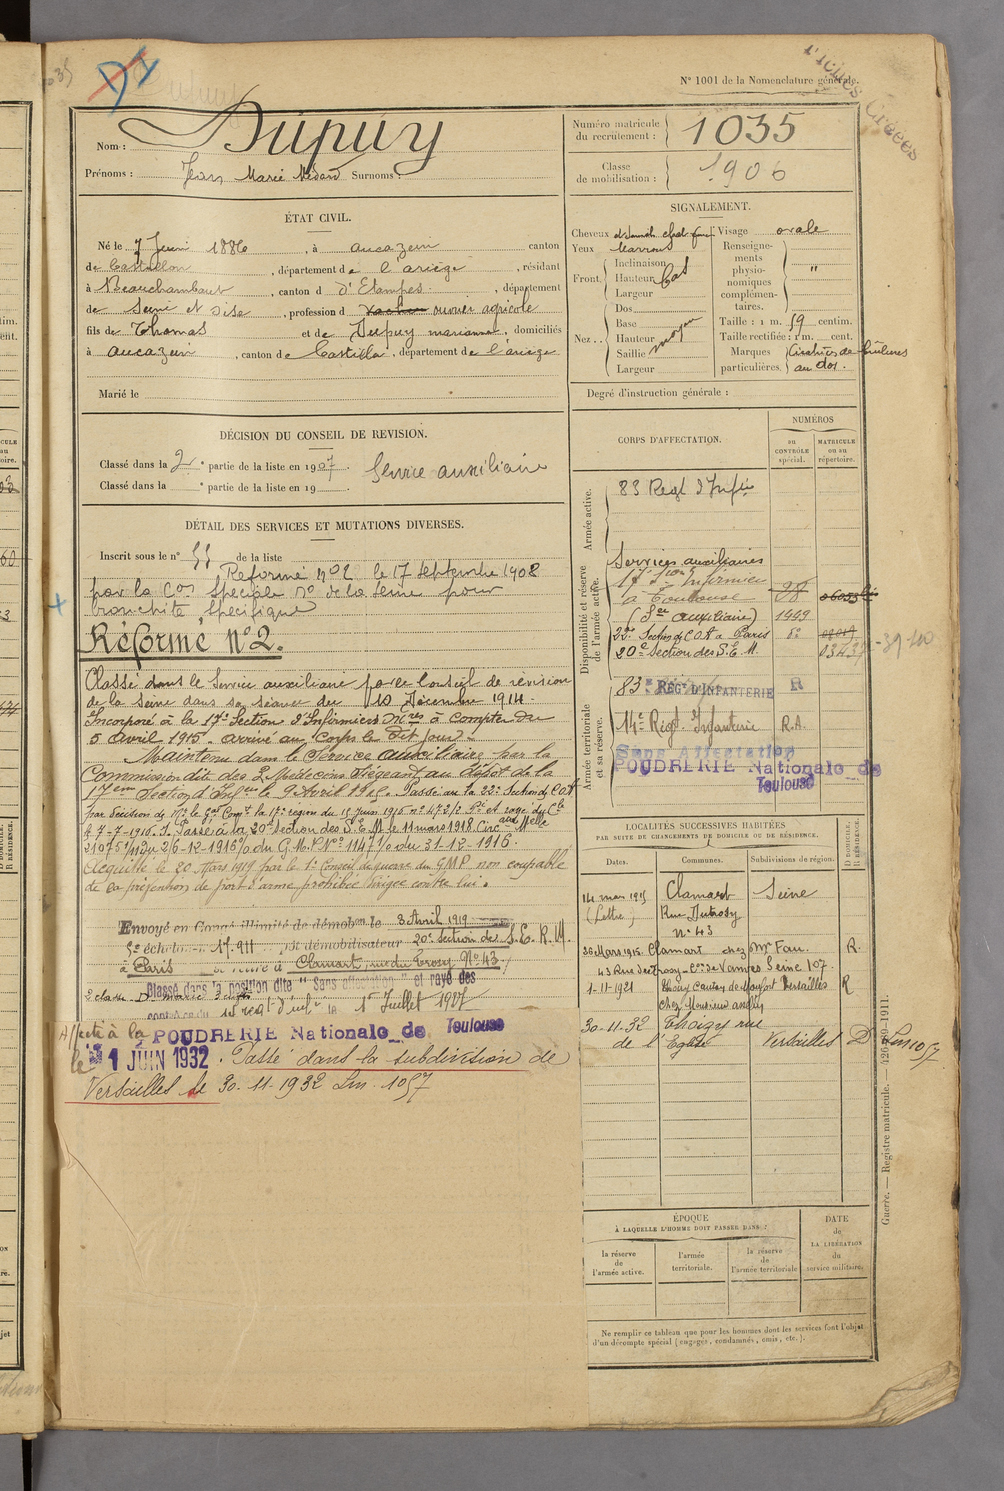 N° 1001 de la Nomenclature générale.
Fiches Créées
Nom : Dupuy
Prénoms : Jean Marie Médard Surnoms :
Numéro matricule du recrutement : 1035
Classe de mobilisation : 1906
ÉTAT CIVIL.
Né le 7 Juin 1886, à aucazein canton
de Castillon, département de l'ariège, résidant
à Beauchambaut, canton d d'Etampes, département
de Seine et Oise, profession d ouvrier agricole
fils de Thomas et de Dupuy marianne, domiciliés
à aucazein, canton de Castillon, département de l'ariège
Marié le
SIGNALEMENT.
Cheveux
Yeux marrons
Front.
Inclinaison
Hauteur bas
Largeur
Nez
Dos
Base
Hauteur moyen
Saillie
Largeur
Visage ovale
Renseignements physionomiques complémentaires. "
Taille : 1 m. 59 centim.
Taille rectifiée : 1 m. cent.
Marques particulières. Cicatrices de brûlures au dos.
Degré d'instruction générale :
DÉCISION DU CONSEIL DE REVISION.
Classé dans la 2e partie de la liste en 1907. Service auxiliaire
Classé dans la e partie de la liste en 19
DÉTAIL DES SERVICES ET MUTATIONS DIVERSES.
Inscrit sous le n° 55 de la liste
Réformé n° 2 le 17 Septembre 1908
par la Con Spéciale de la Seine pour
bronchite spécifique
Réformé N°2.
Classé dans le Service auxiliaire par le Conseil de revision
de la Seine dans sa séance du 10 Décembre 1914.
Incorporé à la 17e Section d'Infirmiers Mres à compter du
5 Avril 1915. arrivé au Corps le dit jour.
Maintenu dans le Service auxiliaire par la
Commission dite des 3 Médecins siégeant au dépôt de la
17ème Section d'Infers le 9 Avril 1915. Passé au la 22e Section de C.O.A
par décision de Mr le Gal Comt la 17e région du 15 Juin 1916 n° 472/2 Pé et rayé des Cles
le 7-7-1916. Passé à la 20e Section des S.E.M. le 11 mars 1918 Circ Melle
21075 1/11 du 26-12-1916 % du G.M.P. N° 1147 % du 31-12-1916.
Acquitté le 20 Mars 1919 par le 1er Conseil de guerre du GMP non coupable
de la prévention de port d'arme prohibée dirigée contre lui.
Envoyé en Congé illimité de démobon le 3 Avril 1919
5e échelon n° 15.911 dépôt démobilisateur 20e Section de S.E.R.M.
à Paris se retire à Clamart, rue du Trosy N° 43
Classé dans la position dite "Sans affectation" et rayé des
le 1er Juillet 1927
Affecté à la POUDRERIE Nationale de Toulouse
le 1 JUIN 1932. Passé dans la subdivision de
Versailles le 30-11-1932 Lm 1057
CORPS D'AFFECTATION.
NUMÉROS
au CONTRÔLE spécial.
MATRICULE ou au répertoire.
Armée active.
83 Regt d'Infie
Disponibilité et réserve de l'armée active.
Services auxiliaires
17e Son Infirmiers
à Toulouse
(Ser auxiliaire) 1449
22e Section de C.O.A. à Paris
20e Section des S.E.M.
Armée territoriale et sa réserve.
83e RÉGt D'INFANTERIE R
14e Régt Infanterie R.A.
Sans Affectation
POUDRERIE Nationale de
Toulouse
LOCALITÉS SUCCESSIVES HABITÉES
PAR SUITE DE CHANGEMENTS DE DOMICILE OU DE RÉSIDENCE.
Dates. Communes. Subdivisions de région. D DOMICILE. R RÉSIDENCE.
14 mars 1915 Clamart Seine
(Lettre) Rue Dutrosy
n° 43
26 Mars 1915. Clamart chez Mr Fau. R.
43 Rue de Trosy - Con de Vanves Seine 107.
1-11-1921 Thoiry Canton de Monfort Versailles R
chez Monsieur
30-11-32 Thoiry rue
de l'Eglise Versailles D Lm 1057
ÉPOQUE
À LAQUELLE L'HOMME DOIT PASSER DANS :
la réserve de l'armée active.
l'armée territoriale.
la réserve de l'armée territoriale
DATE de LA LIBÉRATION du service militaire.
Ne remplir ce tableau que pour les hommes dont les services font l'objet
d'un décompte spécial (engagés, condamnés, omis, etc.).
Guerre. — Registre matricule. — 426-29-1911.